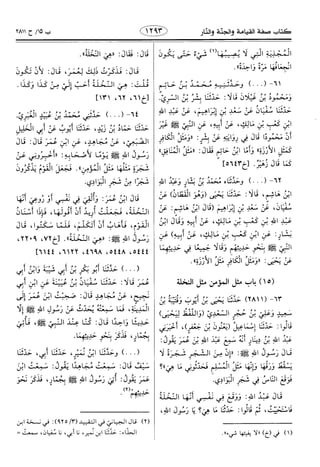 كتاب صفة القيامة والجنّة والنّار
١٢٩٣
ب ١٥/ ح ٢٨١١
الْمُجْذِيَةِ الَّتِي لَا يُصِيبُهَا(١) شَيْءٌ حَتَّى يَكُونَ
انْجِعَافُهَا مَرَّةً وَاحِدَةً».
٦١-(...) وحَدَّثَنِيهِ مُحَمَّدُ بْنُ حَاتِمٍ
وَمَحْمُودُ بْنُ غَيْلَانَ قَالَا: حَدَّثَنَا بِشْرُ بْنُ السَّرِيِّ:
حَدَّثَنَا سُفْيَانُ عَنْ سَعْدِ بْنِ إِبْرَاهِيمَ، عَنْ عَبْدِ اللهِ
ابْنِ كَعْبِ بْنِ مَالِكٍ، عَنْ أَبِيهِ، عَنِ النَّبِيِّ ﷺ غَيْرَ
أَنَّ مَحْمُودًا قَالَ فِي رِوَايَتِهِ عَنْ بِشْرٍ: «وَمَثَلُ الْكَافِرِ
كَمَثَلِ الْأَرْزَةِ» وَأَمَّا ابْنُ حَاتِمٍ فَقَالَ: «مَثَلُ الْمُنَافِقِ»
كَمَا قَالَ زُهَيْرٌ. [خ٥٦٤٣]
٦٢-(...) وحَدَّثَنَا مُحَمَّدُ بْنُ بَشَّارٍ وَعَبْدُ اللهِ
ابْنُ هَاشِمٍ، قَالَا: حَدَّثَنَا يَحْيَى (وَهُوَ الْقَطَّانُ) عَنْ
سُفْيَانَ، عَنْ سَعْدِ بْنِ إِبْرَاهِيمَ (قَالَ ابْنُ هَاشِمٍ: عَنْ
عَبْدِ اللهِ بْنِ كَعْبِ بْنِ مَالِكٍ، عَنْ أَبِيهِ وَقَالَ ابْنُ
بَشَّارٍ: عَنِ ابْنِ كَعْبِ بْنِ مَالِكٍ، عَنْ أَبِيهِ) عَنِ
النَّبِيِّ ﷺ بِنَحْوِ حَدِيثِهِمْ وَقَالَا جَمِيعًا فِي حَدِيثِهِمَا
عَنْ يَحْيَى: «وَمَثَلُ الْكَافِرِ مَثَلُ الْأَرْزَةِ».
(١٥) باب مثل المؤمن مثل النخلة
٦٣-(٢٨١١) حَدَّثَنَا يَحْيَى بْنُ أَيُّوبَ وَقُتَيْبَةُ بْنُ
سَعِيدٍ وَعَلِيُّ بْنُ حُجْرٍ السَّعْدِيُّ (وَاللَّفْظُ لِيَحْيَى)
قَالُوا: حَدَّثَنَا إِسْمَاعِيلُ (يَعْنُونَ بْنَ جَعْفَرٍ)، أَخْبَرَنِي
عَبْدُ اللهِ بْنُ دِينَارٍ أَنَّهُ سَمِعَ عَبْدَ اللهِ بْنَ عُمَرَ يَقُولُ:
قَالَ رَسُولُ اللهِ ﷺ: «إِنَّ مِنَ الشَّجَرِ شَجَرَةً لَا
يَسْقُطُ وَرَقُهَا وَإِنَّهَا مَثَلُ الْمُسْلِمِ فَحَدِّثُونِي مَا هِيَ؟»
فَوَقَعَ النَّاسُ فِي شَجَرِ الْبَوَادِي.
قَالَ عَبْدُ اللهِ: وَوَقَعَ فِي نَفْسِي أَنَّهَا النَّخْلَةُ
فَاسْتَحْيَيْتُ، ثُمَّ قَالُوا: حَدِّثْنَا مَا هِيَ؟ يَا رَسُولَ اللهِ،
(١) في (خ) «لا يفيئها شيء».
قَالَ: فَقَالَ: «هِيَ النَّخْلَةُ».
قَالَ: فَذَكَرْتُ ذَلِكَ لِعُمَرَ، قَالَ: لَأَنْ تَكُونَ
قُلْتَ: هِيَ النَّخْلَةُ أَحَبُّ إِلَيَّ مِنْ كَذَا وَكَذَا.
[خ٦١، ٦٢، ١٣١]
٦٤-(...) حَدَّثَنِي مُحَمَّدُ بْنُ عُبَيْدٍ الْغُبَرِيُّ:
حَدَّثَنَا حَمَّادُ بْنُ زَيْدٍ، حَدَّثَنَا أَيُّوبُ عَنْ أَبِي الْخَلِيلِ
الضُّبَعِيِّ، عَنْ مُجَاهِدٍ، عَنِ ابْنِ عُمَرَ قَالَ: قَالَ
رَسُولُ اللهِ ﷺ يَوْمًا لِأَصْحَابِهِ: «أَخْبِرُونِي عَنْ
شَجَرَةٍ مَثَلُهَا مَثَلُ الْمُؤْمِنِ». فَجَعَلَ الْقَوْمُ يَذْكُرُونَ
شَجَرًا مِنْ شَجَرِ الْبَوَادِي.
قَالَ ابْنُ عُمَرَ: وَأُلْقِيَ فِي نَفْسِي أَوْ رُوعِيَ أَنَّهَا
النَّخْلَةُ، فَجَعَلْتُ أُرِيدُ أَنْ أَقُولَهَا، فَإِذَا أَسْنَانُ
الْقَوْمِ، فَأَهَابُ أَنْ أَتَكَلَّمَ، فَلَمَّا سَكَتُوا، قَالَ
رَسُولُ اللهِ ﷺ: «هِيَ النَّخْلَةُ». [خ٧٢، ٢٢٠٩،
٥٤٤٤، ٥٤٤٨، ٤٦٩٨، ٦١٢٢، ٦١٤٤]
(...) حَدَّثَنَا أَبُو بَكْرِ بْنُ أَبِي شَيْبَةَ وَابْنُ أَبِي
عُمَرَ قَالَا: حَدَّثَنَا سُفْيَانُ بْنُ عُيَيْنَةَ عَنِ ابْنِ أَبِي
نَجِيحٍ، عَنْ مُجَاهِدٍ قَالَ: صَحِبْتُ ابْنَ عُمَرَ إِلَى
الْمَدِينَةِ، فَمَا سَمِعْتُهُ يُحَدِّثُ عَنْ رَسُولِ اللهِ ﷺ إِلَّا
حَدِيثًا وَاحِدًا قَالَ: كُنَّا عِنْدَ النَّبِيِّ ﷺ، فَأُتِيَ
بِجُمَّارٍ، فَذَكَرَ بِنَحْوِ حَدِيثِهِمَا.
(...) وحَدَّثَنَا ابْنُ نُمَيْرٍ، حَدَّثَنَا أَبِي، حَدَّثَنَا
سَيْفٌ قَالَ: سَمِعْتُ مُجَاهِدًا يَقُولُ: سَمِعْتُ ابْنَ
عُمَرَ يَقُولُ: أُتِيَ رَسُولُ اللهِ ﷺ بِجُمَّارٍ، فَذَكَرَ نَحْوَ
حَدِيثِهِمْ(٢).
(٢) قال الجياني في التقييد (٩٢٥/٣): في نسخة ابن
الحذّاء: حدّثنا ابن نُمير، نا أبي، نا سُفيان، سمعت =